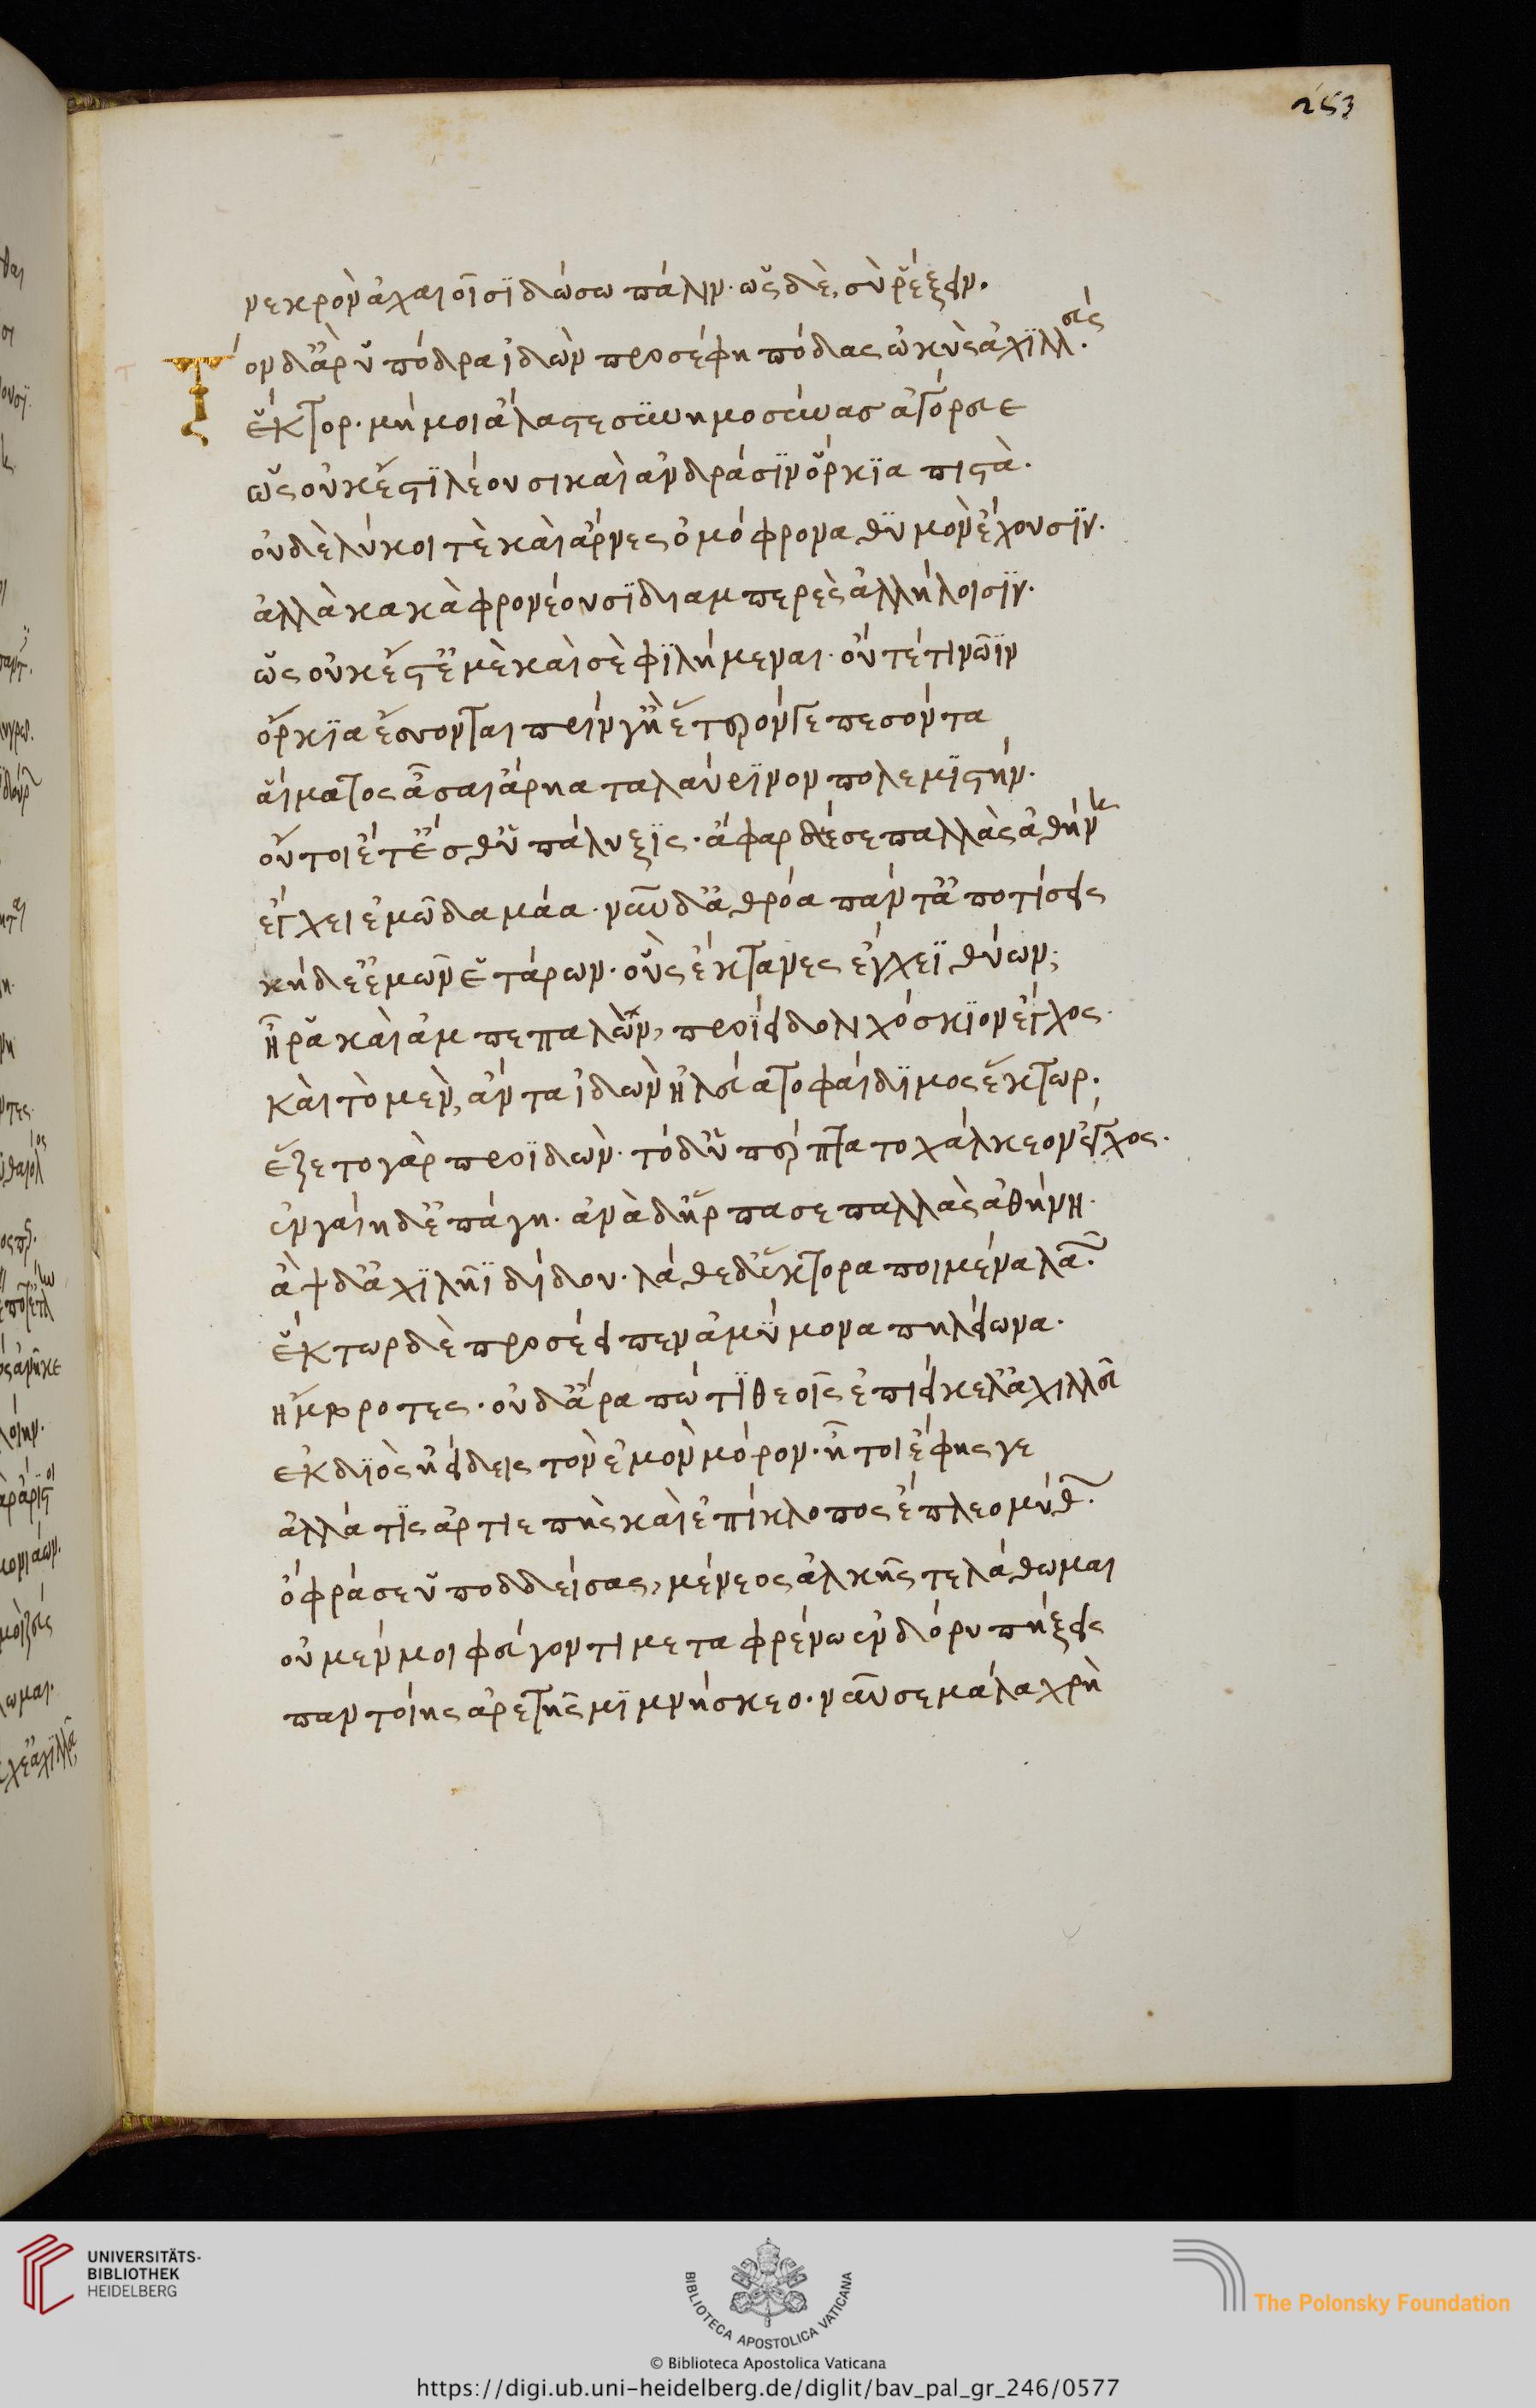 253
νεκρὸν ἀχαιοῖσϊ δώσω πάλιν· ὣς δὲ σὺ ῥέζειν.
Τὸν δ' ἂρ ὑπόδρα ἰδὼν προσέφη πόδας ὠκὺς ἀχϊλλεύς.
ἕκτορ. μή μοι ἄλαστε συνημοσύνας ἀγόρευε
ὡς οὐκ ἔστϊ λέουσι καὶ ἀνδράσϊν ὅρκϊα πιστὰ.
οὐδὲ λύκοι τὲ καὶ ἄρνες ὁμόφρονα θϋμὸν ἔχουσϊν.
ἀλλὰ κακὰ φρονέουσϊ διαμπερὲς ἀλλήλοισϊν.
ὣς οὐκ ἔστ' ἐμὲ καὶ σὲ φϊλήμεναι· οὔτέ τι νῶϊν
ὅρκϊα ἔσσονται πρίν γ' ἢ ἕτερόν γε πεσόντα
αἵματος ἆσαι ἄρηα ταλαύρϊνον πολεμϊστήν.
οὔ τοι ἔτ' ἔσθ' ὑπάλυξϊς· ἄφαρ δέ σε παλλὰς ἀθήνη
ἔγχει ἐμῶ δαμάα· νῦν δ' ἀθρόα πάντ' ἀποτίσεις
κήδε' ἐμῶν ἑτάρων· οὓς ἔκτανες ἔγχεϊ θύων;
ἦ ῥα καὶ ἀμπεπαλὼν, προΐει δολιχόσκϊον ἔγχος.
καὶ τὸ μὲν, ἄντα ἰδὼν ἠλεύατο φαίδϊμος ἕκτωρ.
ἕζετο γὰρ προϊδὼν· τό δ' ὑπέρπτατο χάλκεον ἔγχος.
ἐν γαίη δ' ἐπάγη· ἀνὰ δ' ἥρπασε παλλὰς ἀθήνη.
ἂψ δ' ἀχϊλῆϊ δίδου· λάθε δ' ἕκτορα ποιμένα λαῶν.
ἕκτωρ δὲ προσέειπεν ἀμύμονα πηλείωνα.
ἤμβροτες· οὐδ' ἄρα πώ τϊ θεοῖς ἐπιείκελ' ἀχιλλεῦ
ἐκ δϊὸς ἠείδεις τὸν ἐμὸν μόρον· ἦ τοι ἔφης γε
ἀλλά τϊς ἀρτιεπὴς καὶ ἐπίκλοπος ἔπλεο μύθων.
ὄφρά σ' ὑποδδείσας, μένεος ἀλκῆς τε λάθωμαι
οὐ μέν μοι φεύγοντι μεταφρένω ἐν δόρυ πήξεις
παντοίης ἀρετῆς μϊμνήσκεο· νῦν σε μάλα χρὴ
UNIVERSITÄTS-
BIBLIOTHEK
HEIDELBERG
BIBLIOTECA APOSTOLICA VATICANA
The Polonsky Foundation
© Biblioteca Apostolica Vaticana
https://digi.ub.uni-heidelberg.de/diglit/bav_pal_gr_246/0577